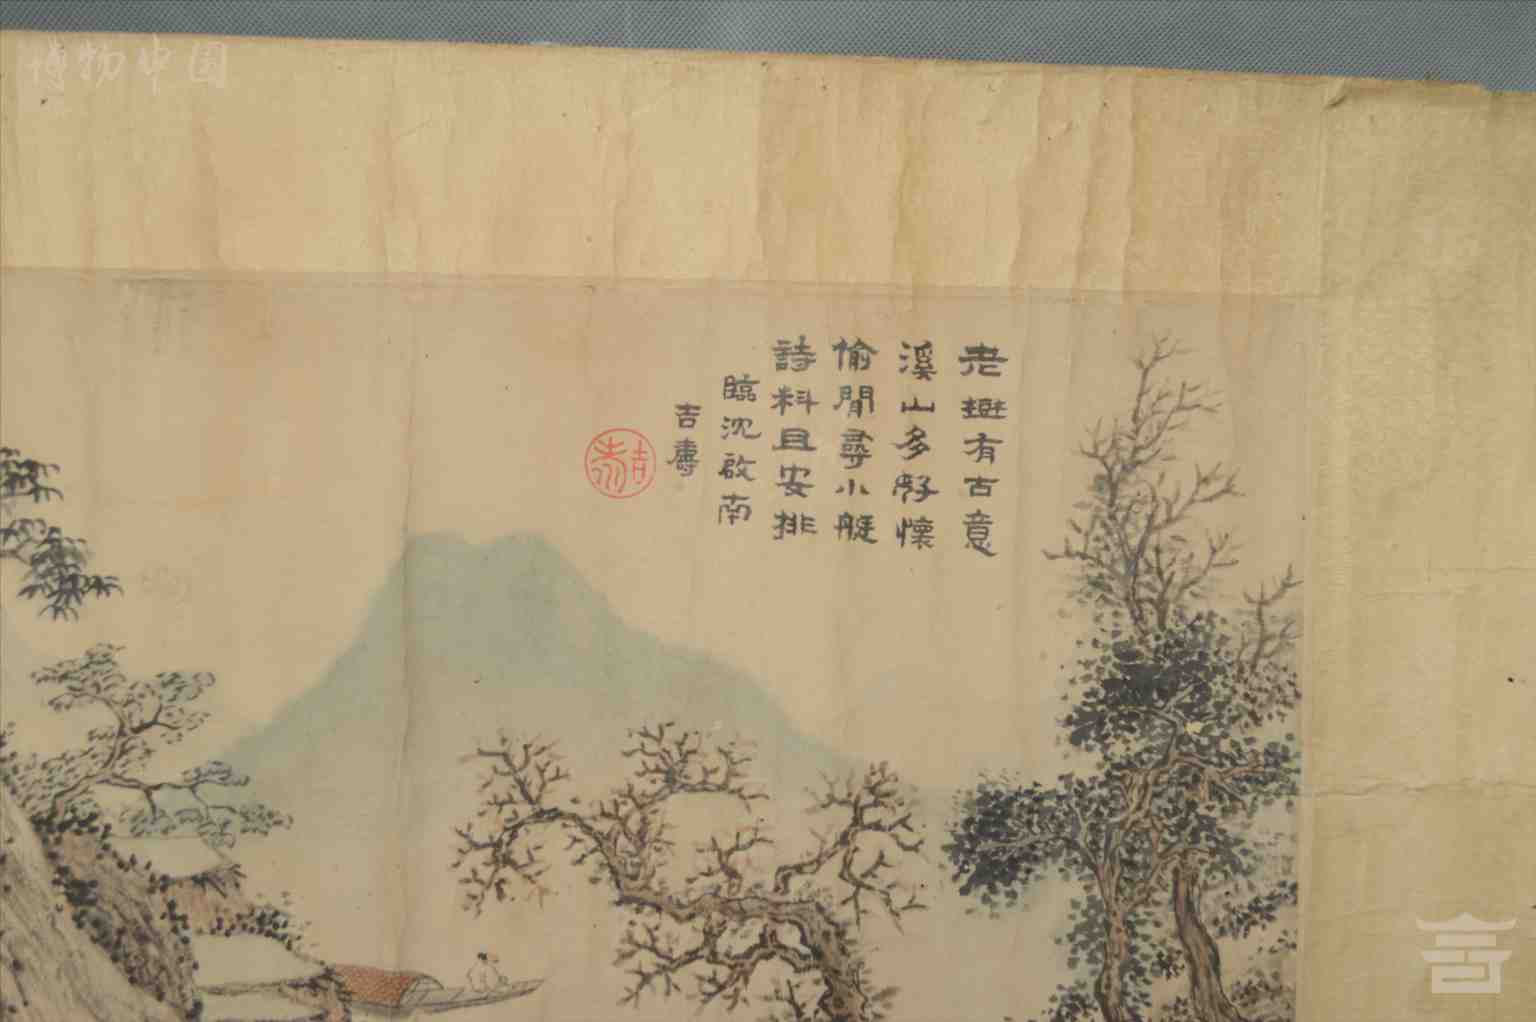 博物中国
老樹有古意
溪山多好懷
偷閒尋小艇
詩料且安排
臨沈啟南
吉壽